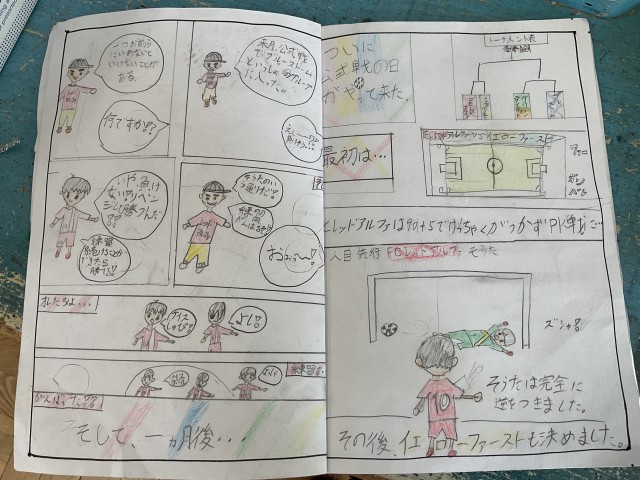 一つお前らに
いわないと
いけないことが
ある。
何ですか!?
来月、公式戦
でブルーストーム
といっしょのグループ
に入った。
えー
いや、負け
ないリベン
ジして勝つんだ
練習
続けることが
できたら
勝てる!
そうたのい
う通りだ!!
おぉぉ〜!
おれたちは...
ナイス
しゅび!
よし!
がんばった!
そして、一ヵ月後・・・
ついに
公式戦の日
がやって来た。
トーナメント表
最初は…
FCレッドアルファVSイエローファースト
FCレッドアルファは90+5でけっちゃくがつかずPK戦に…
1人目 先行 FCレッドアルファ そうた
ズシャ!
10
そうたは完全に
逆をつきました。
その後、イエローファーストも決めました。